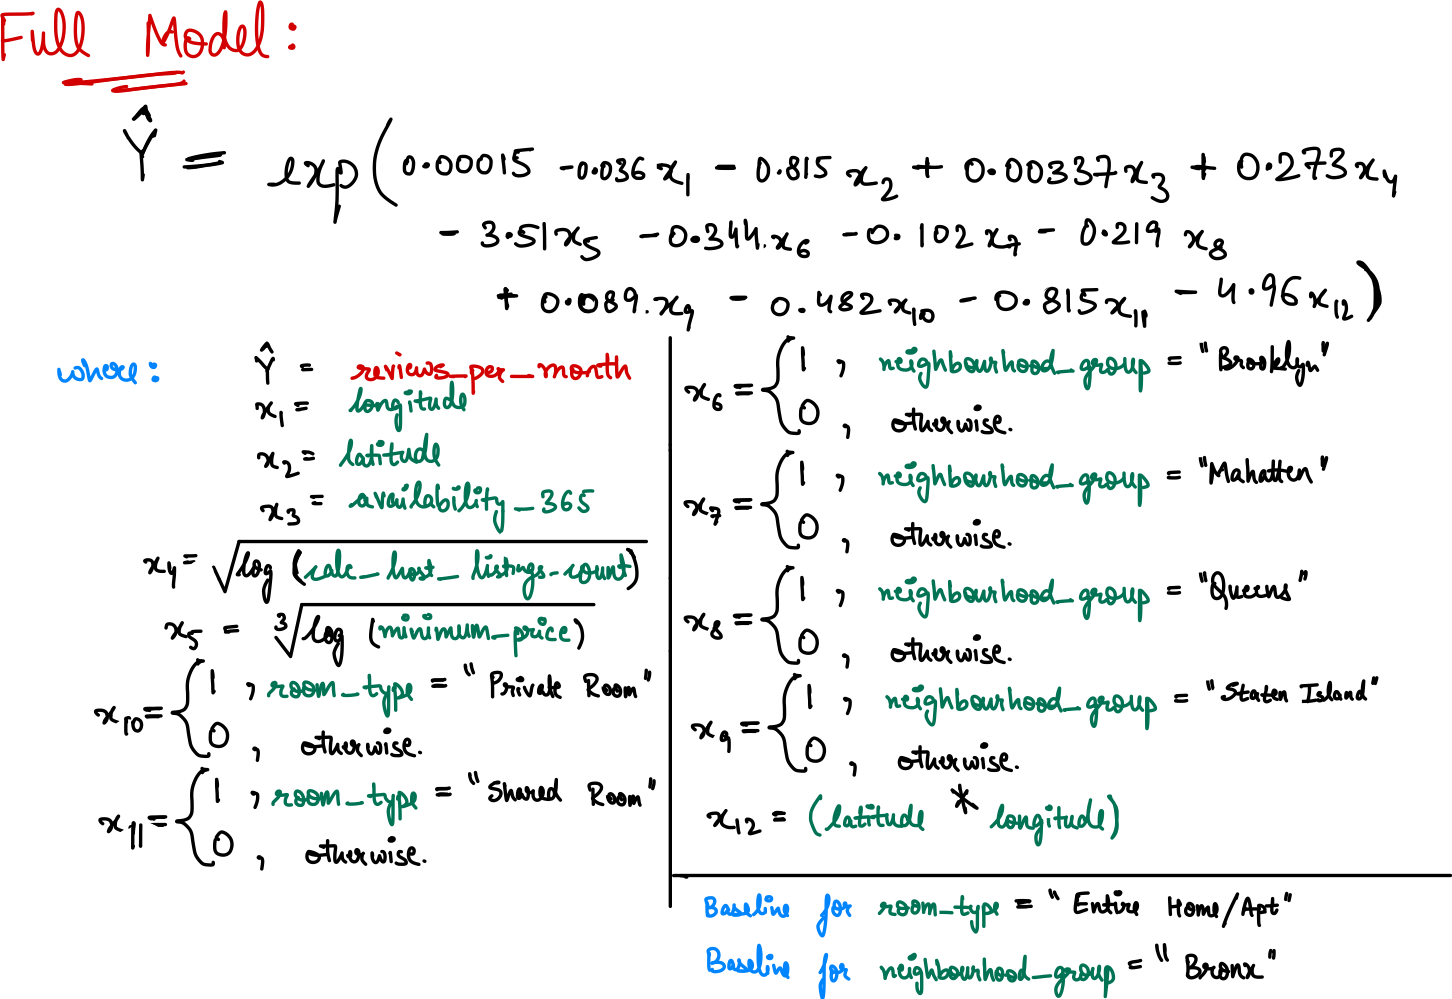 Full Model:
Ŷ = exp(0.00015 -0.036 x₁ - 0.815 x₂ + 0.00337x₃ + 0.273x₄
- 3.51x₅ - 0.344.x₆ - 0.102 x₇ - 0.219 x₈
+ 0.089.x₉ - 0.482x₁₀ - 0.815x₁₁ - 4.96x₁₂)
where: Ŷ = reviews_per_month
x₁ = longitude
x₂ = latitude
x₃ = availability_365
x₄ = √log (calc_host_listings-count)
x₅ = ∛log (minimum_price)
x₁₀ = { 1 , room_type = "Private Room"
0 , otherwise.
x₁₁ = { 1 , room_type = "Shared Room"
0 , otherwise.
x₆ = { 1 , neighbourhood_group = "Brooklyn"
0 , otherwise.
x₇ = { 1 , neighbourhood_group = "Mahatten"
0 , otherwise.
x₈ = { 1 , neighbourhood_group = "Queens"
0 , otherwise.
x₉ = { 1 , neighbourhood_group = "Staten Island"
0 , otherwise.
x₁₂ = (latitude * longitude)
Baseline for room_type = "Entire Home/Apt"
Baseline for neighbourhood_group = "Bronx"